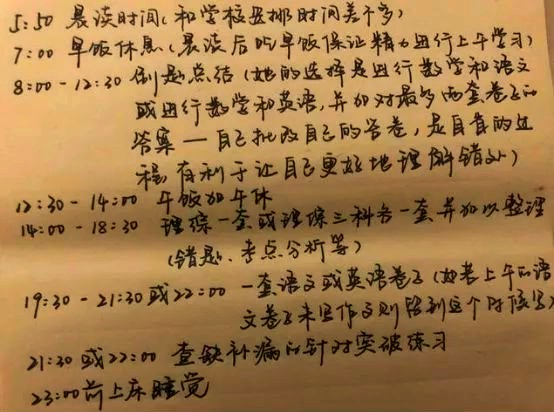 5:50 晨读时间(和学校安排时间差不多)
7:00 早饭休息(晨读后吃早饭保证精力进行上午学习)
8:00-12:30 刷题总结(她的选择是进行数学和语文
或进行数学和英语,并加对最多两套卷子的
答案——自己批改自己的答卷,是自省的过
程,有利于让自己更好地理解错处)
12:30-14:00 午饭加午休
14:00-18:30 理综一套或理综三科各一套并加以整理
(错题、考点分析等)
19:30-21:30或22:00 一套语文或英语卷子(如若上午的语
文卷子未写作文则留到这个时候写)
21:30或22:00 查缺补漏的针对突破练习
23:00前上床睡觉